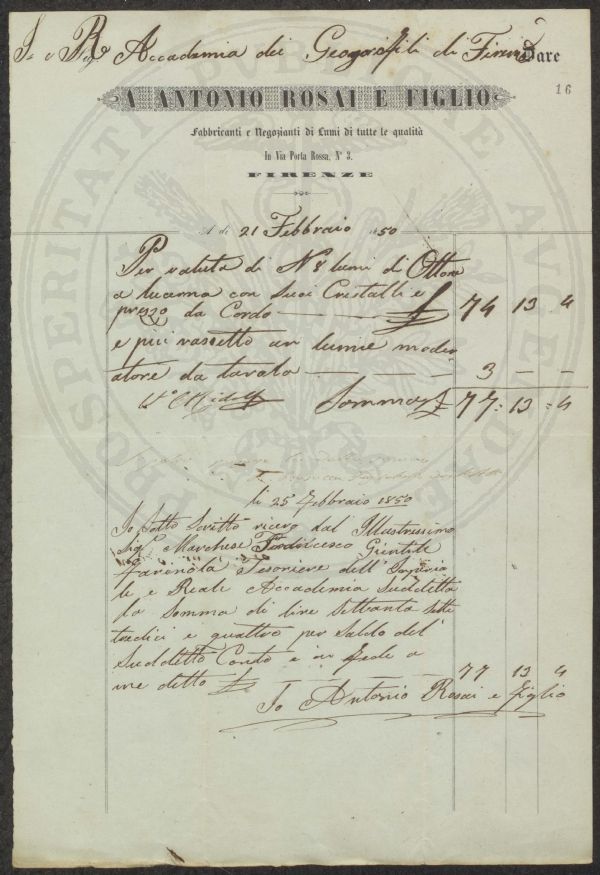 I. e R. Accademia dei Georgofili di Firenze Dare
16
A ANTONIO ROSAI E FIGLIO
Fabbricanti e Negozianti di Lumi di tutte le qualità
In Via Porta Rossa, N° 3.
FIRENZE
A di 21 Febbraio 1850
Per valuta di N° 8 lumi di Ottone
a lucerna con suoi Cristalli e
prezzo da Cordo £ 74 13 4
e più rassetto un lume moder
atore da tavola 3 — —
Somma £ 77 : 13 : 4
li 25 Febbraio 1850
Io Sotto Scritto ricevo dal Illustrissimo
Sig. Marchese Francesco Gentile
Farinola Tesoriere dell' Imperia
le e Reale Accademia Suddetta
la Somma di lire Settanta Sette
tredici e quattro per Saldo del
Suddetto Conto e in fede a
me detto £ 77 13 4
Io Antonio Rosai e Figlio
PROSPERITATI PUBLICAE AUGENDAE